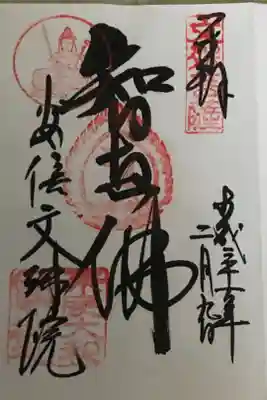 奉拝
平成三十年
二月九日
智恵佛
安倍文殊院